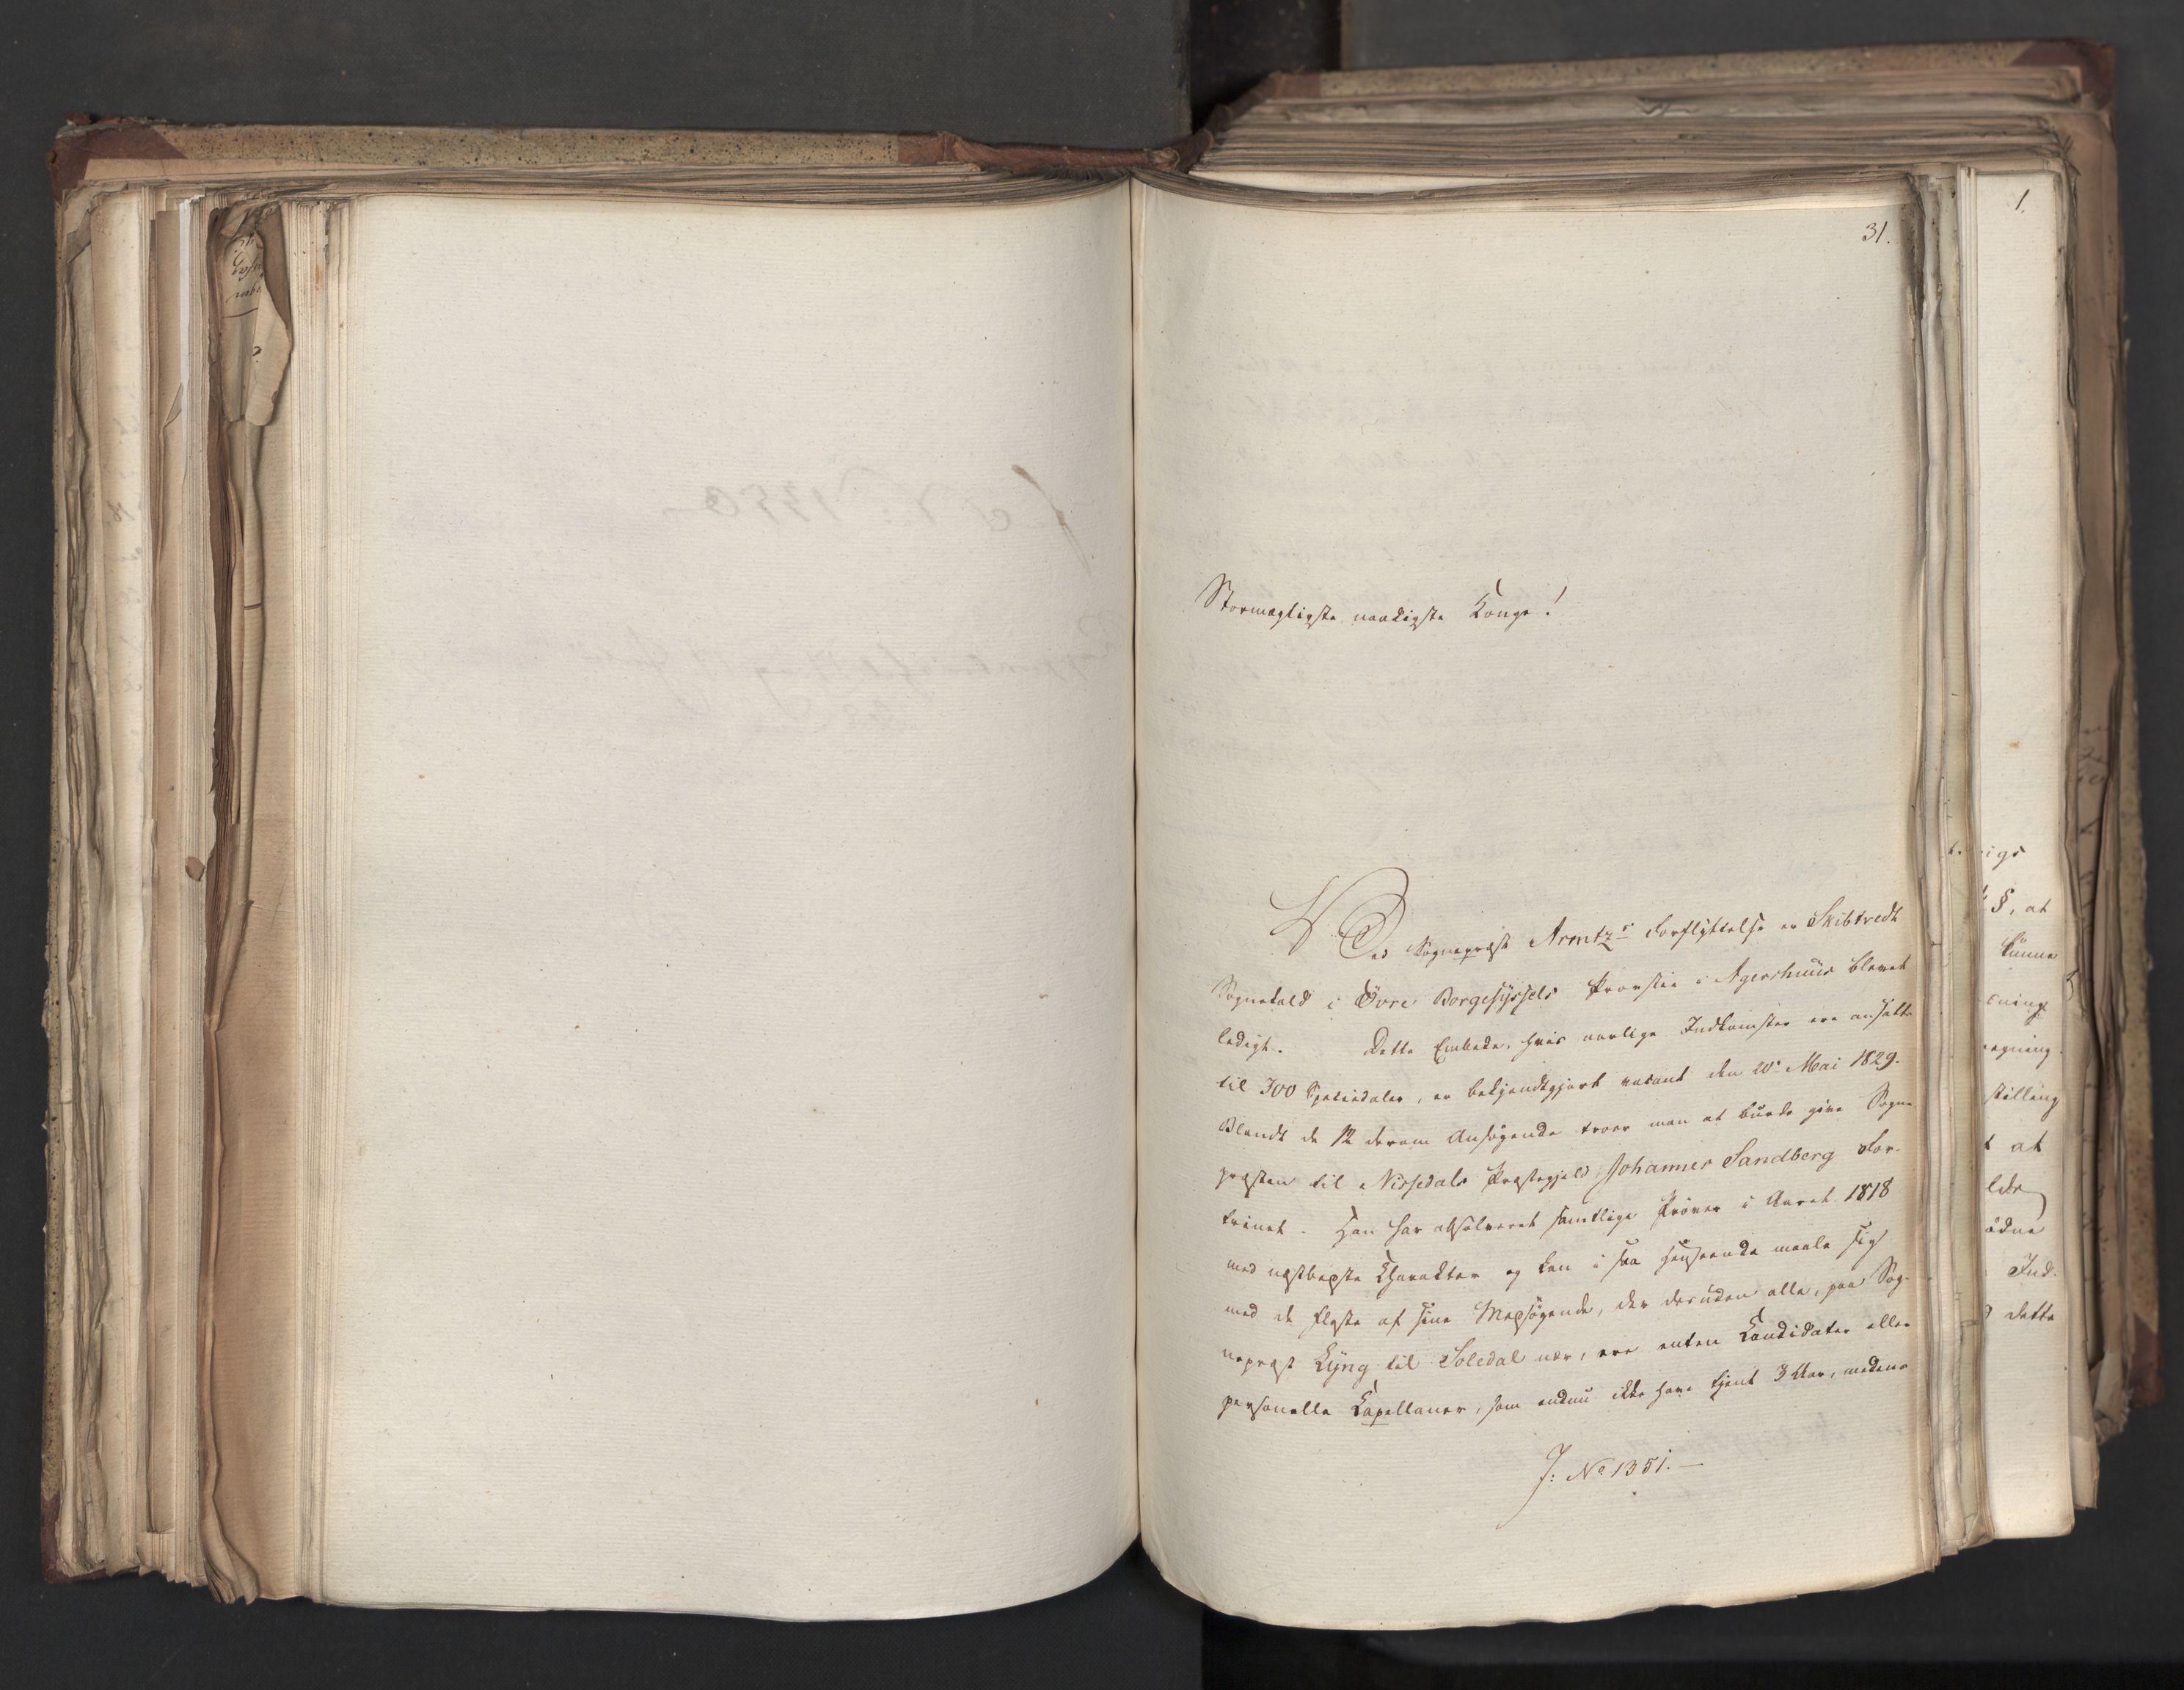 31.
Stormægtigste naadigste Konge!
Ved Sognepræst Arentz's Forflyttelse er Skibtvedt
Sognekald i Øvre Borgesyssels Provstie i Agershuus blevet
ledigt. Dette Embede, hvis aarlige Indkomster ere ansatte
til 300 Speciedaler, er bekjendtgjort vacant den 20de Mai 1829.
Blandt de 12 derom Ansøgende troer man at burde give Sogne
præsten til Nissedals Præstegjeld Johannes Sandberg For-
trinet. Han har absolveret samtlige Prøver i Aaret 1818
med næstbedste Charakter og kan i saa Henseende maale sig
med de fleste af sine Medsøgende, der desuden alle, paa Sog-
nepræst Lyng til Soledal nær, ere enten Candidater eller
personelle Capellaner, som endnu ikke have tjent 3 Aar, medens
J: No 1351.
1.
§, at
kunne
stilling
at
Ind-
dette